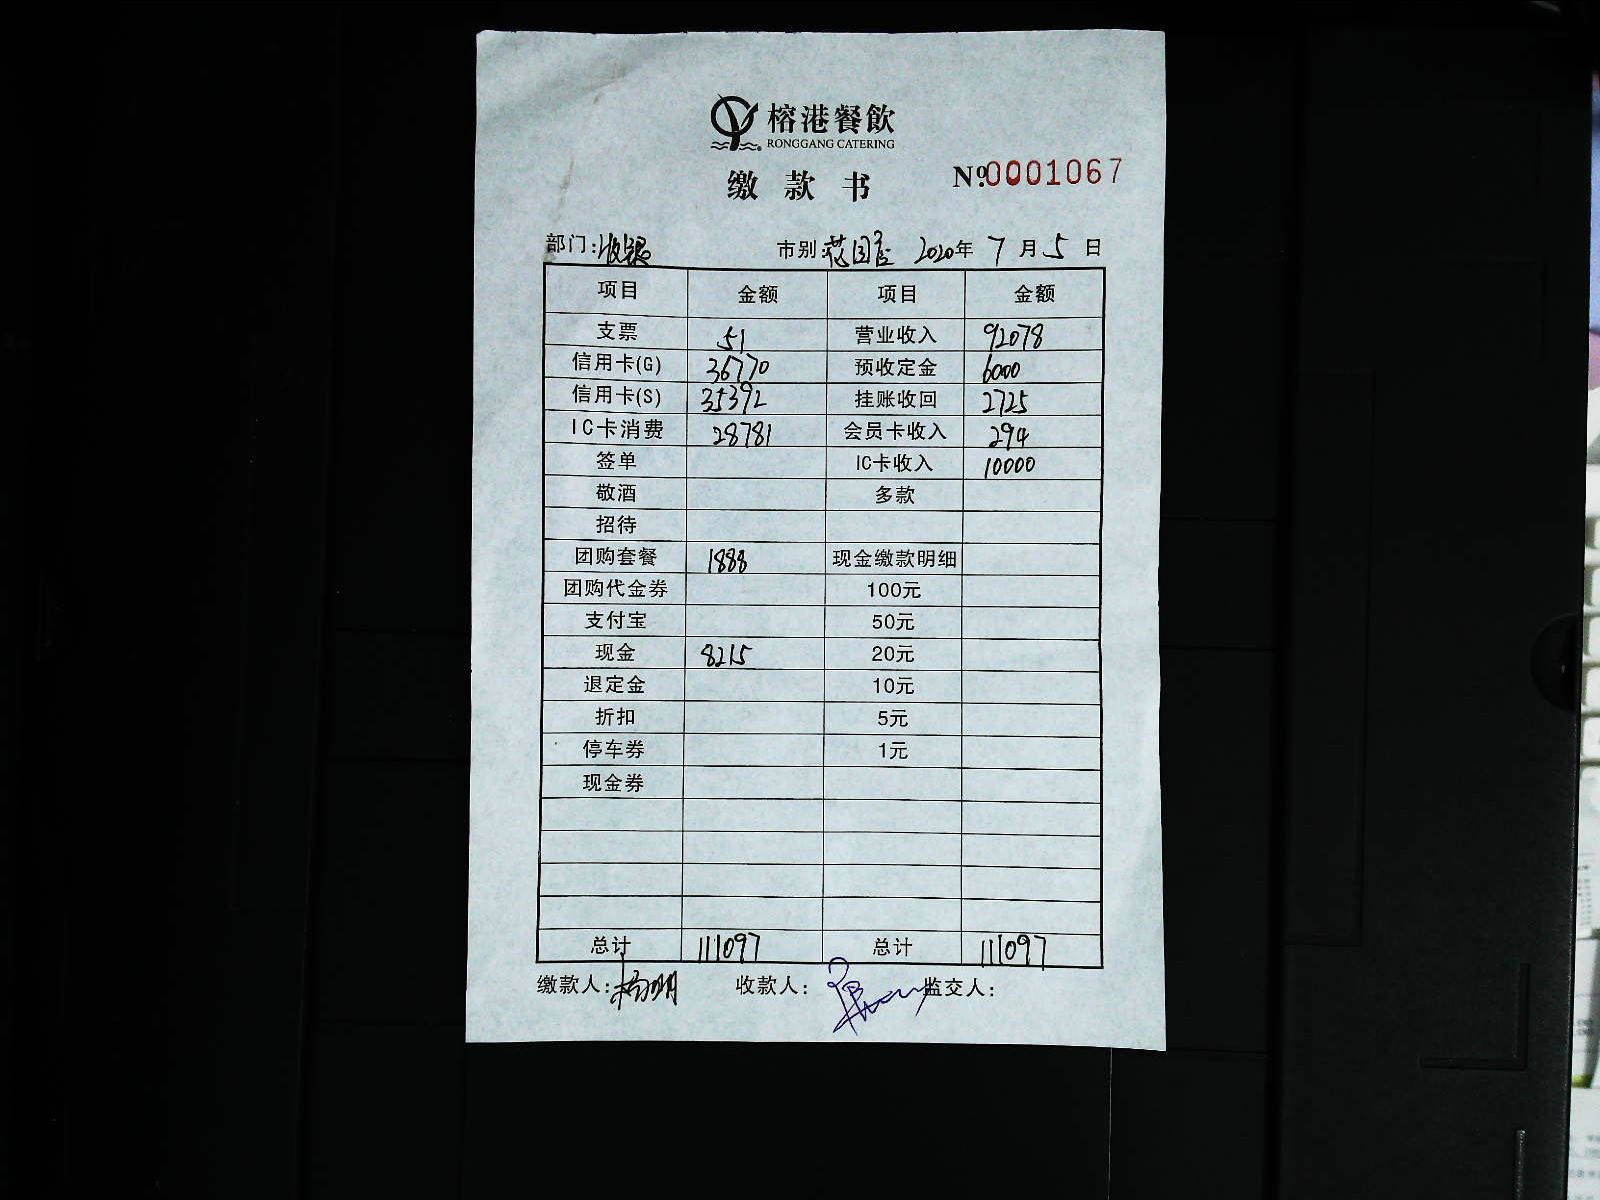 榕港餐飲
RONGGANG CATERING
缴款书
No.0001067
部门:收银 市别:花园店 2020年 7月 5日
项目 金额 项目 金额
支票 51 营业收入 92078
信用卡(G) 36770 预收定金 6000
信用卡(S) 35392 挂账收回 2725
IC卡消费 28781 会员卡收入 294
签单 IC卡收入 10000
敬酒 多款
招待
团购套餐 1888 现金缴款明细
团购代金券 100元
支付宝 50元
现金 8215 20元
退定金 10元
折扣 5元
停车券 1元
现金券
总计 111097 总计 111097
缴款人: 收款人: 监交人: